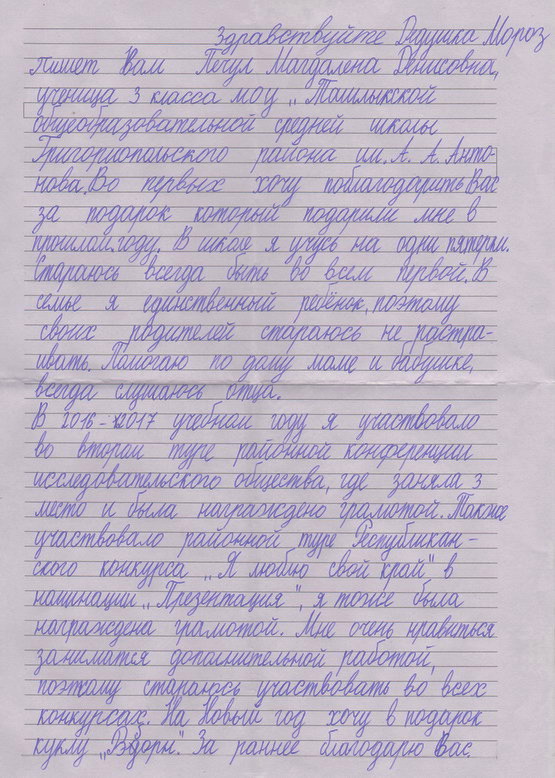 Здравствуйте Дедушка Мороз
Пишет Вам Печул Магдалена Денисовна,
ученица 3 класса моу „Ташлыкской
общеобразовательной средней школы
Григориопольского района им. А. А. Анто-
нова. Во первых хочу поблагодарить Вас
за подарок который подарили мне в
прошлом году. В школе я учусь на одни пятерки.
Стараюсь всегда быть во всем первой. В
семье я единственный ребёнок, поэтому
своих родителей стараюсь не растра-
ивать. Помогаю по дому маме и бабушке,
всегда слушаюсь отца.
В 2016-2017 учебном году я участвовало
во втором туре районной конференции
исследовательского общества, где заняла 3
место и была награждено грамотой. Также
участвовало районной туре Республикан-
ского конкурса „Я люблю свой край" в
наминации „Презентация", я тоже была
награждена грамотой. Мне очень нравиться
заниматся дополнительной работой,
поэтому стараюсь участвовать во всех
конкурсах. На Новый год хочу в подарок
куклу За раннее благодарю Вас.